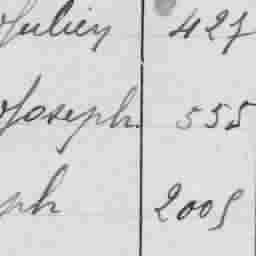 Julien 427
Joseph 555
ph 2005